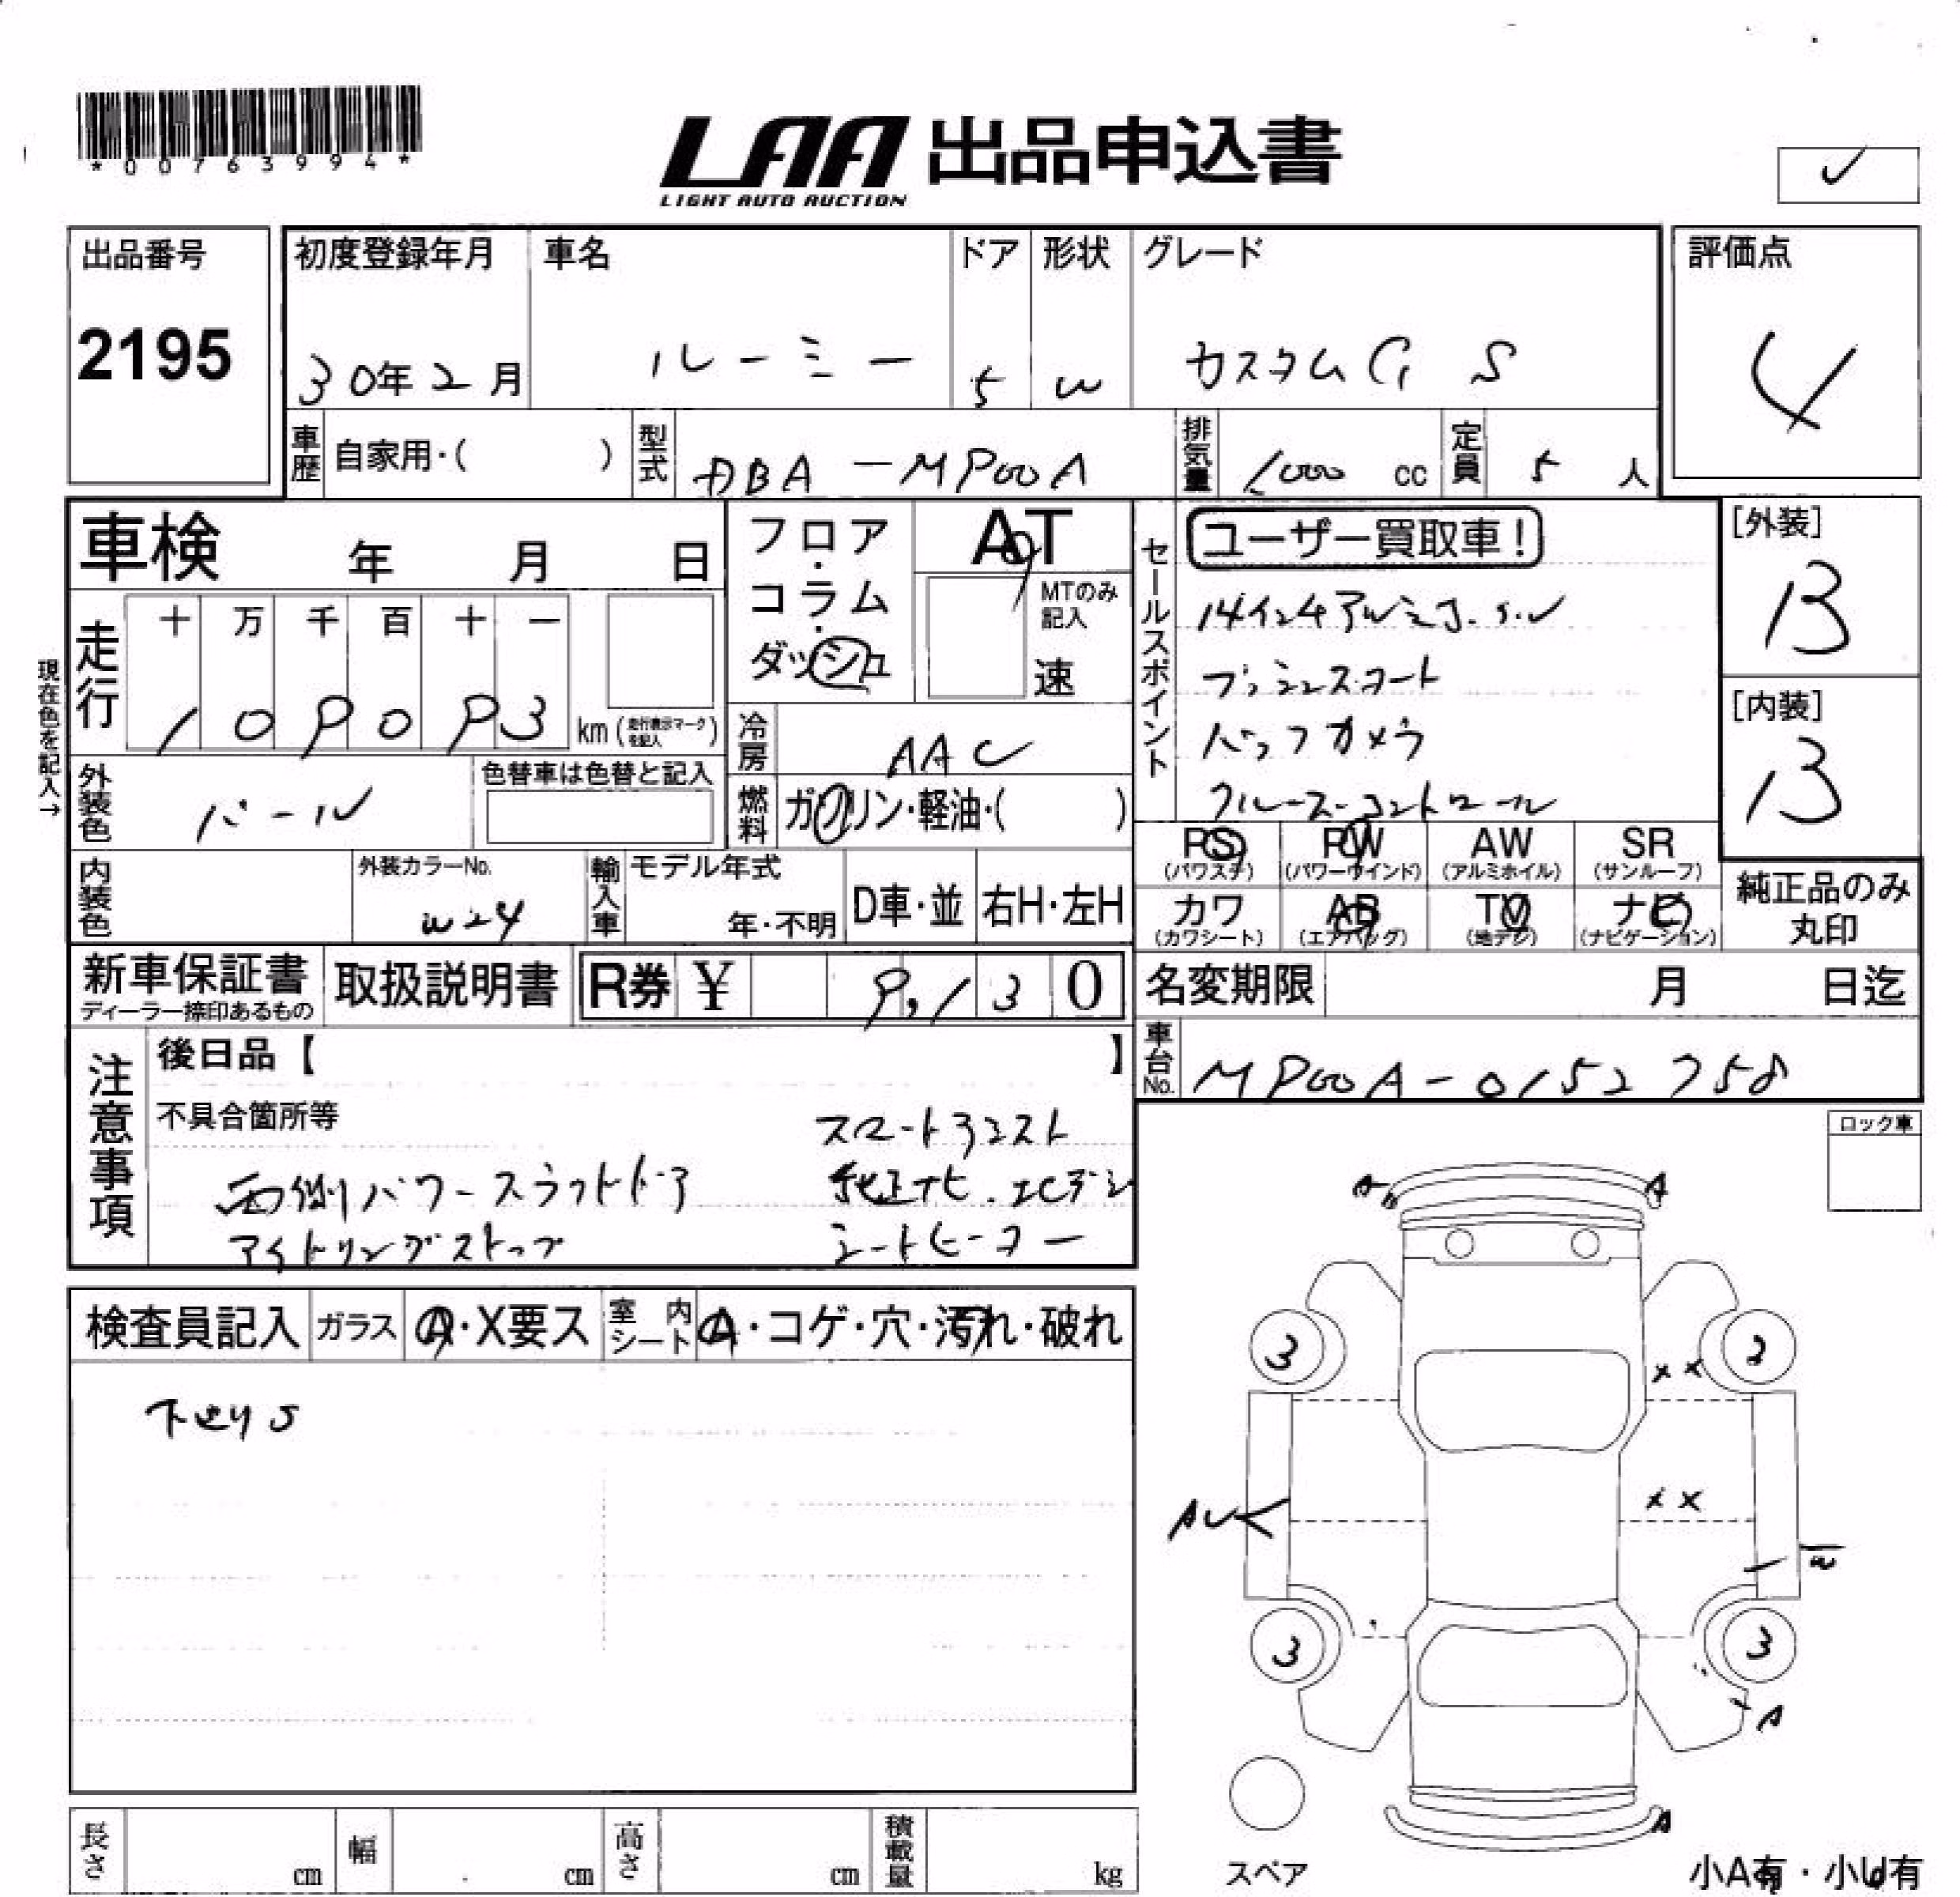 *00763994*
LAA 出品申込書
LIGHT AUTO AUCTION
出品番号
2195
初度登録年月
30年2月
車名
ルーミー
ドア
5
形状
W
グレード
カスタムG S
評価点
4
車歴 自家用・( )
型式 DBA-MP00A
排気量 1000 cc
定員 5 人
車検 年 月 日
フロア・コラム・ダッシュ
AT
MTのみ記入
速
セールスポイント
ユーザー買取車!
14インチアルミ
プッシュスタート
バックカメラ
クルーズコントロール
[外装]
B
[内装]
B
現在色を記入→
走行
十 万 千 百 十 一
1 0 9 0 9 3 km (走行表示マークを記入)
冷房 AAC
外装色 パール
色替車は色替と記入
燃料 ガソリン・軽油・( )
PS (パワステ)
PW (パワーウインド)
AW (アルミホイル)
SR (サンルーフ)
カワ (カワシート)
AB (エアバッグ)
TV (地デジ)
ナビ (ナビゲーション)
純正品のみ丸印
内装色
外装カラーNo.
W24
輸入車
モデル年式
年・不明
D車・並
右H・左H
新車保証書
ディーラー捺印あるもの
取扱説明書
R券 ¥ 9,130
名変期限 月 日迄
車台No. MP00A-0152758
注意事項
後日品【 】
不具合箇所等
スマートアシスト
両側パワースライドドア
純正ナビ
アイドリングストップ
シートヒーター
ロック車
検査員記入
ガラス A・X要ス
室内シート A・コゲ・穴・汚れ・破れ
下廻りS
A A
3 2
XX
XX
AU
W
3 3
A
A
スペア
小A有・小U有
長さ cm
幅 cm
高さ cm
積載量 kg